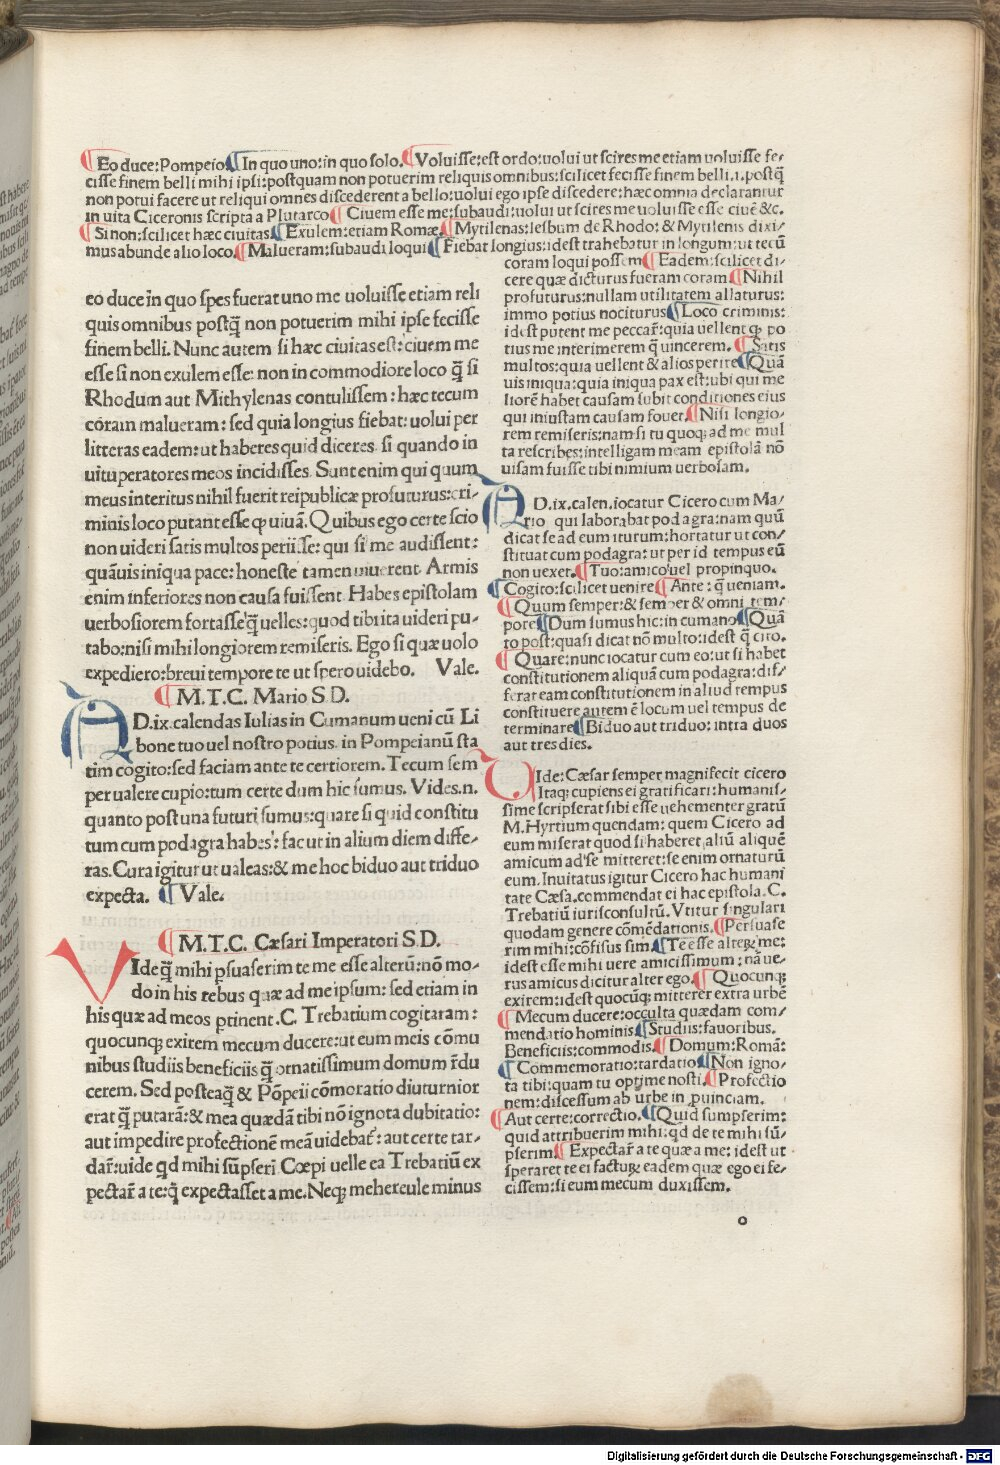 ¶ Eo duce: Pompeio ¶ In quo uno: in quo solo. ¶ Voluisse: est ordo: uolui ut scires me etiam uoluisse fe/
cisse finem belli mihi ipsi: postquam non potuerim reliquis omnibus: scilicet fecisse finem belli.i. postq̃
non potui facere ut reliqui omnes discederent a bello: uolui ego ipse discedere: hæc omnia declarantur
in uita Ciceronis scripta a Plutarco ¶ Ciuem esse me: subaudi: uolui ut scires me uoluisse esse ciuē &c.
¶ Si non: scilicet hæc ciuitas ¶ Exulem: etiam Romæ. ¶ Mytilenas: lesbum de Rhodo: & Mytilenis dixi/
mus abunde alio loco. ¶ Malueram: subaudi loqui ¶ Fiebat longius: idest trahebatur in longum: ut tecū
eo duce in quo spes fuerat uno me uoluisse etiam reli
quis omnibus postq̃ non potuerim mihi ipse fecisse
finem belli. Nunc autem si hæc ciuitas est: ciuem me
esse si non exulem esse: non in commodiore loco q̃ si
Rhodum aut Mithylenas contulissem: hæc tecum
coram malueram: sed quia longius fiebat: uolui per
litteras eadem: ut haberes quid diceres si quando in
uituperatores meos incidisses. Sunt enim qui quum
meus interitus nihil fuerit reipublicæ profuturus: cri/
minis loco putant esse ꝙ uiuā. Quibus ego certe scio
non uideri satis multos periisse: qui si me audissent:
quāuis iniqua pace: honeste tamen uiuerent Armis
enim inferiores non causa fuissent Habes epistolam
uerbosiorem fortasse q̃ uelles: quod tibi ita uideri pu/
tabo: nisi mihi longiorem remiseris. Ego si quæ uolo
expediero: breui tempore te ut spero uidebo. Vale.
¶ M.T.C. Mario S.D.
AD.ix.calendas Iulias in Cumanum ueni cū Li
bone tuo uel nostro potius. in Pompeianū sta
tim cogito: sed faciam ante te certiorem. Tecum sem
per ualere cupio: tum certe dum hic sumus. Vides.n.
quanto post una futuri sumus: quare si quid constitu
tum cum podagra habes: fac ut in alium diem diffe/
ras. Cura igitur ut ualeas: & me hoc biduo aut triduo
expecta. ¶ Vale.
¶ M.T.C. Cæsari Imperatori S.D.
VIde q̃ mihi ꝑsuaserim te me esse alterū: nō mo/
do in his rebus quæ ad me ipsum: sed etiam in
his quæ ad meos ꝑtinent. C. Trebatium cogitaram:
quocunqꝫ exirem mecum ducere: ut eum meis cōmu
nibus studiis beneficiis q̃ ornatissimum domum r̄du
cerem. Sed posteaq̃ & Pōpeii cōmoratio diuturnior
erat q̃ putarā: & mea quædā tibi nō ignota dubitatio:
aut impedire profectionē meā uidebat̃: aut certe tar/
dar̃: uide qd mihi sūpseri Cœpi uelle ea Trebatiū ex
pectar̃ a te: q̃ expectasset a me. Neqꝫ mehercule minus
coram loqui possem ¶ Eadem: scilicet di/
cere quæ dicturus fueram coram ¶ Nihil
profuturus: nullam utilitatem allaturus:
immo potius nociturus ¶ Loco criminis:
idest putent me peccar̃: quia uellent ꝙ po
tius me interimerem q̃ uincerem. ¶ Satis
multos: quia uellent & alios perire ¶ Quā
uis iniqua: quia iniqua pax est: ubi qui me
liorē habet causam subit conditiones eius
qui iniustam causam fouet. ¶ Nisi longio/
rem remiseris: nam si tu quoqꝫ ad me mul
ta rescribes: intelligam meam epistolā nō
uisam fuisse tibi nimium uerbosam.
AD.ix.calen.iocatur Cicero cum Ma/
rio qui laborabat podagra: nam quū
dicat se ad eum iturum: hortatur ut con/
stituat cum podagra: ut per id tempus eū
non uexet. ¶ Tuo: amico uel propinquo.
¶ Cogito: scilicet uenire ¶ Ante: q̃ ueniam.
¶ Quum semper: & semper & omni tem/
pore ¶ Dum sumus hic: in cumano ¶ Quā
to post: quasi dicat nō multo: idest q̃ cito.
¶ Quare: nunc iocatur cum eo: ut si habet
constitutionem aliquā cum podagra: dif/
ferat eam constitutionem in aliud tempus
constituere autem ē locum uel tempus de
terminare ¶ Biduo aut triduo: intra duos
aut tres dies.
VIde: Cæsar semper magnifecit cicero
Itaqꝫ cupiens ei gratificari: humanis/
sime scripserat sibi esse uehementer gratū
M. Hyrtium quendam: quem Cicero ad
eum miserat quod si haberet aliū aliquē
amicum ad se mitteret: se enim ornaturū
eum. Inuitatus igitur Cicero hac humani
tate Cæsa. commendat ei hac epistola. C.
Trebatiū iurisconsultū. Vtitur singulari
quodam genere cōmēdationis. ¶ Persuase
rim mihi: cōfisus sim ¶ Te esse alteꝝ me:
idest esse mihi uere amicissimum: nā ue/
rus amicus dicitur alter ego. ¶ Quocunqꝫ
exirem: idest quocūqꝫ mitterer extra urbē
¶ Mecum ducere: occulta quædam com/
mendatio hominis ¶ Studiis: fauoribus.
Beneficiis: commodis. ¶ Domum: Romā:
¶ Commemoratio: tardatio ¶ Non igno/
ta tibi: quam tu optime nosti. ¶ Profectio
nem: discessum ab urbe in ꝓuinciam.
¶ Aut certe: correctio. ¶ Quid sumpserim:
quid attribuerim mihi: qd de te mihi sū/
pserim. ¶ Expectar̃ a te quæ a me: idest ut
speraret te ei facturꝫ eadem quæ ego ei fe/
cissem: si eum mecum duxissem.
o
Digitalisierung gefördert durch die Deutsche Forschungsgemeinschaft - DFG